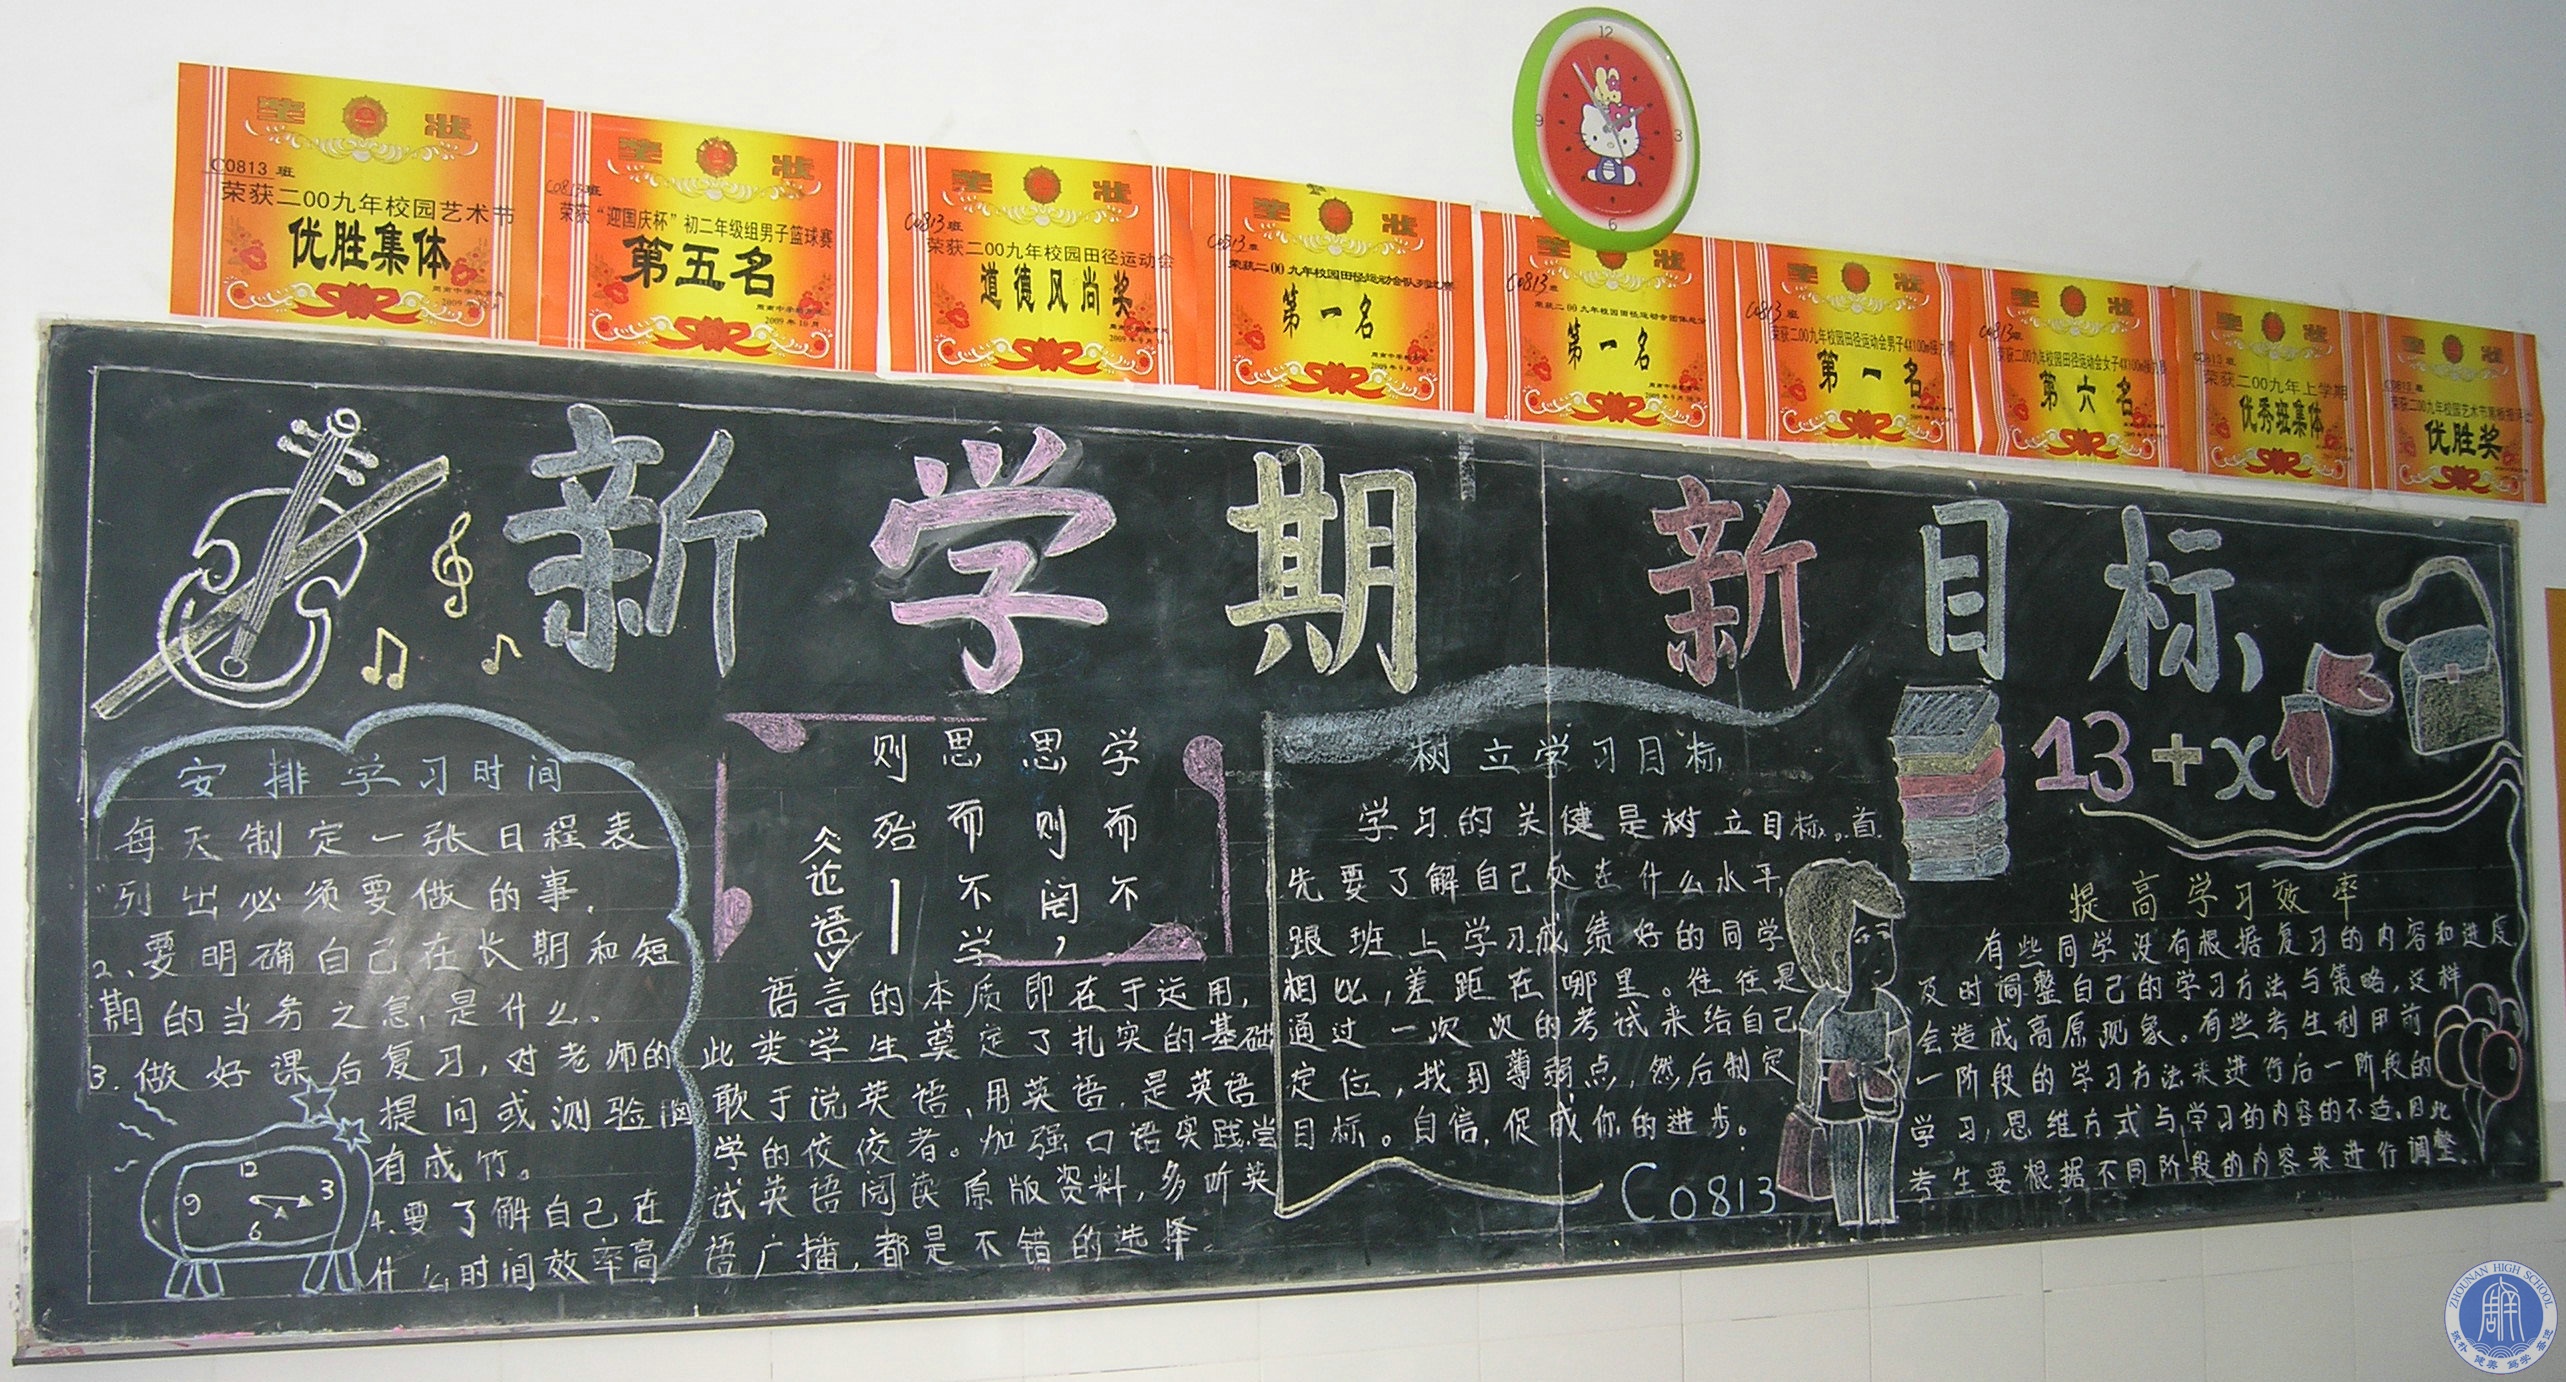 奖状
C0813班
荣获二00九年校园艺术节
优胜集体
奖状
C0813班
荣获“迎国庆杯”初二年级组男子篮球赛
第五名
周南中学教育处
2009年10月
奖状
C0813班
荣获二00九年校园田径运动会
道德风尚奖
奖状
C0813班
荣获二00九年校园田径运动会队列比赛
第一名
周南中学教育处
2009年9月30日
奖状
C0813班
荣获二00九年校园田径运动会团体总分
第一名
奖状
C0813班
荣获二00九年校园田径运动会男子4X100m接力赛
第一名
奖状
C0813班
荣获二00九年校园田径运动会女子4X100m接力赛
第六名
奖状
C0813班
荣获二00九年上学期
优秀班集体
奖状
C0813班
荣获二00九年校园艺术节黑板报评比
优胜奖
12
3
6
9
新学期 新目标
安排学习时间
每天制定一张日程表
列出必须要做的事.
2、要明确自己在长期和短
期的当务之急,是什么。
3.做好课后复习,对老师的
提问或测验胸
有成竹。
4.要了解自己在
什么时间效率高
12
3
6
9
学而不
思则罔,
思而不学
则殆—
《论语》
语言的本质即在于运用,
此类学生奠定了扎实的基础
敢于说英语、用英语.是英语
学的佼佼者。加强口语实践尝
试英语阅读原版资料,多听英
语广播,都是不错的选择.
树立学习目标
学习的关健是树立目标。首
先要了解自己处在什么水平,
跟班上学习成绩好的同学
相比,差距在哪里。往往是
通过一次次的考试来给自己
定位,找到薄弱点,然后制定
目标。自信,促成你的进步。
C0813
13+x
提高学习效率
有些同学没有根据复习的内容和进度
及时调整自己的学习方法与策略,这样
会造成高原现象。有些考生利用前
一阶段的学习方法来进行后一阶段的
学习,思维方式与学习的内容的不适.因此
考生要根据不同阶段的内容来进行调整.
ZHOUNAN HIGH SCHOOL